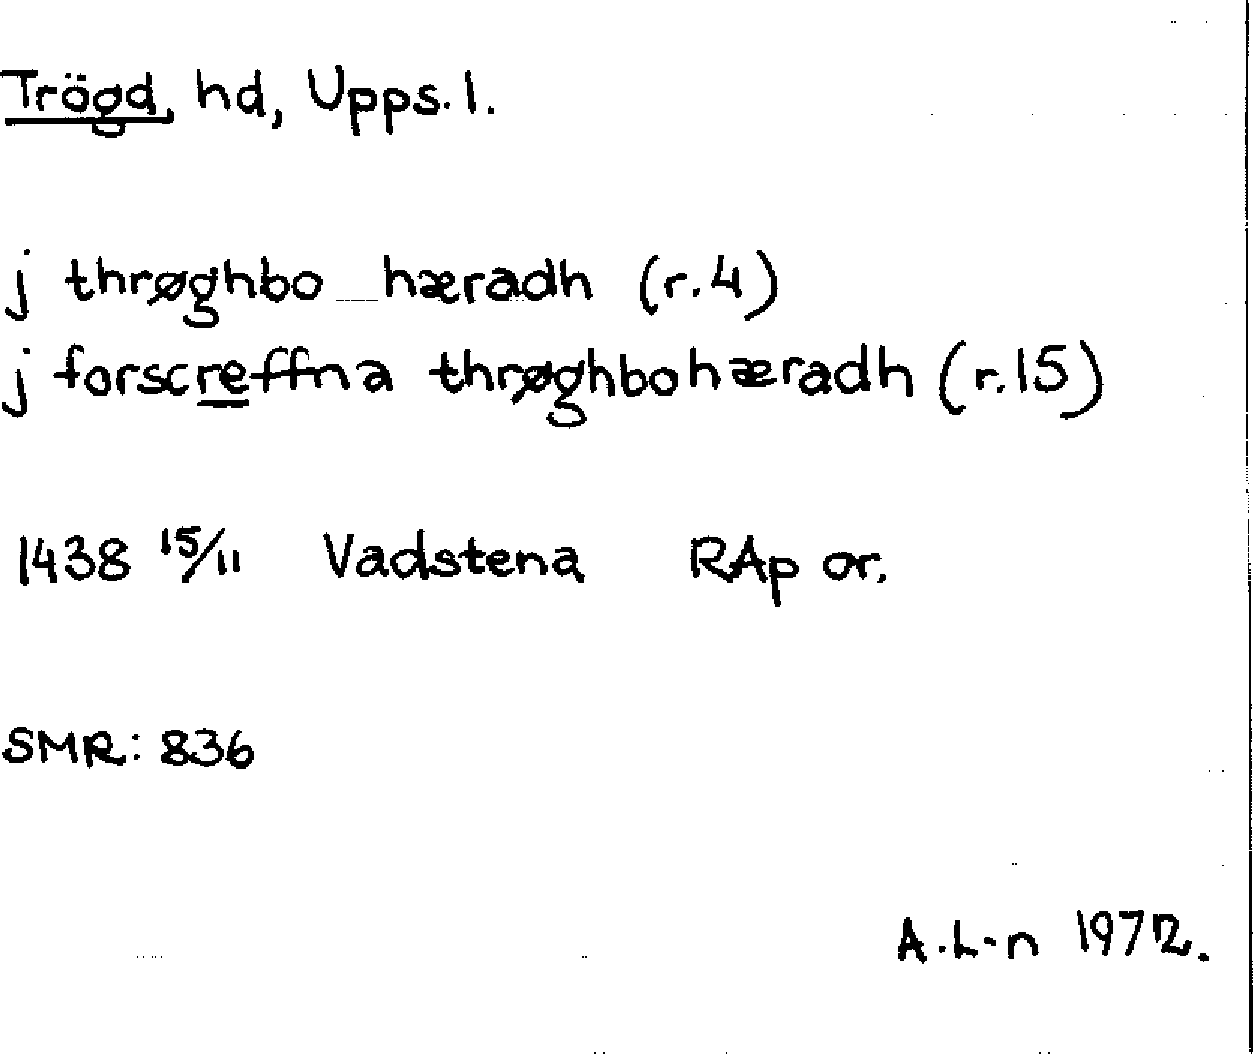 Trögd, hd, Upps. l.
j thrøghbo hæradh (r. 4)
j forscreffna thrøghbohæradh (r. 15)
1438 15/11 Vadstena RAp or.
SMR: 836
A. L-n 1972.